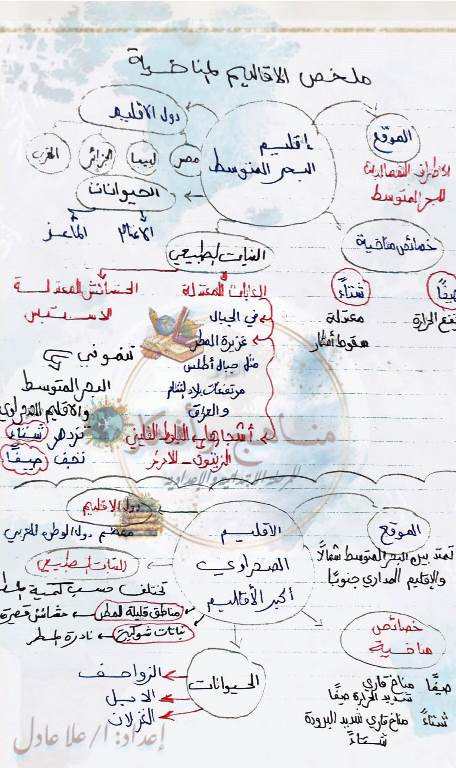 ملخص الاقاليم المناخية
الموقع
الاطراف الشمالية
للبحر المتوسط
إقليم
البحر المتوسط
دول الاقليم
مصر
ليبيا
الجزائر
المغرب
الحيوانات
الاغنام
الماعز
خصائص مناخية
صيفًا
شتاءً
معتدلة
سقوط أمطار
النبات الطبيعي
الغابات المعتدلة
في الجبال
غزيرة المطر
مثل جبال أطلس
مرتفعات بلاد الشام
والعراق
أشجارها البلوط الفلين
الزيتون - الأرز
الحشائش المعتدلة
الاستبس
تنمو في
البحر المتوسط
والاقليم الصحراوي
تزدهر شتاءً
تجف صيفًا
الموقع
تمتد بين البحر المتوسط شمالًا
والإقليم المداري جنوبًا
الأقليم
الصحراوي
أكبر الأقاليم
دول الاقليم
معظم دول الوطن العربي
النبات الطبيعي
تختلف حسب كمية المطر
مناطق قليلة المطر
حشائش قصيرة
نباتات شوكية
نادرة المطر
الحيوانات
الزواحف
الابل
الغزلان
خصائص
مناخية
صيفًا مناخ قاري
شديد الحرارة صيفًا
شتاءً مناخ قاري شديد البرودة
شتاءً
إعداد: أ/علا عادل